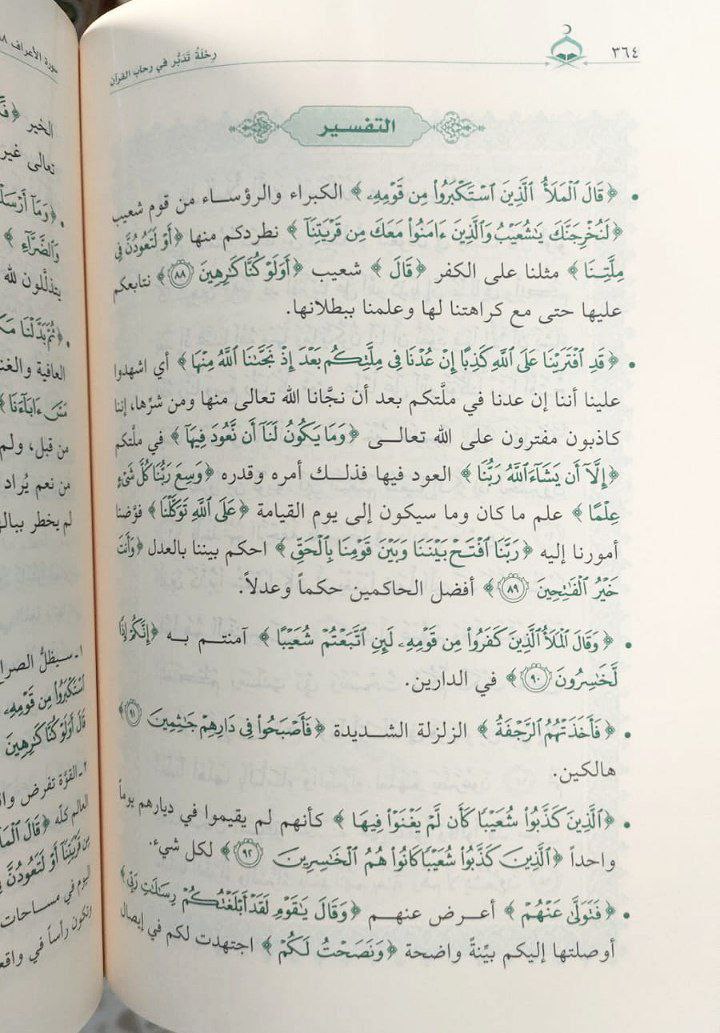 ٣٦٤
رحلة تدبر في رحاب القرآن
التفسير
• ﴿قَالَ ٱلْمَلَأُ ٱلَّذِينَ ٱسْتَكْبَرُواْ مِن قَوْمِهِۦ﴾ الكبراء والرؤساء من قوم شعيب
﴿لَنُخْرِجَنَّكَ يَٰشُعَيْبُ وَٱلَّذِينَ ءَامَنُواْ مَعَكَ مِن قَرْيَتِنَآ﴾ نطردكم منها ﴿أَوْ لَتَعُودُنَّ فِي
مِلَّتِنَا﴾ مثلنا على الكفر ﴿قَالَ﴾ شعيب ﴿أَوَلَوْ كُنَّا كَٰرِهِينَ ٨٨﴾ نتابعكم
عليها حتى مع كراهتنا لها وعلمنا ببطلانها.
• ﴿قَدِ ٱفْتَرَيْنَا عَلَى ٱللَّهِ كَذِبًا إِنْ عُدْنَا فِي مِلَّتِكُم بَعْدَ إِذْ نَجَّىٰنَا ٱللَّهُ مِنْهَا﴾ أي اشهدوا
علينا أننا إن عدنا في ملّتكم بعد أن نجّانا الله تعالى منها ومن شرّها، إننا
كاذبون مفترون على الله تعالى ﴿وَمَا يَكُونُ لَنَآ أَن نَّعُودَ فِيهَآ﴾ في ملّتكم
﴿إِلَّآ أَن يَشَآءَ ٱللَّهُ رَبُّنَا﴾ العود فيها فذلك أمره وقدره ﴿وَسِعَ رَبُّنَا كُلَّ شَيْءٍ
عِلْمًا﴾ علم ما كان وما سيكون إلى يوم القيامة ﴿عَلَى ٱللَّهِ تَوَكَّلْنَا﴾ فوّضنا
أمورنا إليه ﴿رَبَّنَا ٱفْتَحْ بَيْنَنَا وَبَيْنَ قَوْمِنَا بِٱلْحَقِّ﴾ احكم بيننا بالعدل ﴿وَأَنتَ
خَيْرُ ٱلْفَٰتِحِينَ ٨٩﴾ أفضل الحاكمين حكماً وعدلاً.
• ﴿وَقَالَ ٱلْمَلَأُ ٱلَّذِينَ كَفَرُواْ مِن قَوْمِهِۦ لَئِنِ ٱتَّبَعْتُمْ شُعَيْبًا﴾ آمنتم به ﴿إِنَّكُمْ إِذًا
لَّخَٰسِرُونَ ٩٠﴾ في الدارين.
• ﴿فَأَخَذَتْهُمُ ٱلرَّجْفَةُ﴾ الزلزلة الشديدة ﴿فَأَصْبَحُواْ فِي دَارِهِمْ جَٰثِمِينَ ٩١﴾
هالكين.
• ﴿ٱلَّذِينَ كَذَّبُواْ شُعَيْبًا كَأَن لَّمْ يَغْنَوْاْ فِيهَا﴾ كأنهم لم يقيموا في ديارهم يوماً
واحداً ﴿ٱلَّذِينَ كَذَّبُواْ شُعَيْبًا كَانُواْ هُمُ ٱلْخَٰسِرِينَ ٩٢﴾ لكل شيء.
• ﴿فَتَوَلَّىٰ عَنْهُمْ﴾ أعرض عنهم ﴿وَقَالَ يَٰقَوْمِ لَقَدْ أَبْلَغْتُكُمْ رِسَٰلَٰتِ رَبِّي﴾
أوصلتها إليكم بيّنةً واضحة ﴿وَنَصَحْتُ لَكُمْ﴾ اجتهدت لكم في إيصال
سورة الأعراف
الخير
تعالى غير
وَٱلضَّرَّآءِ﴾
يتذلّلون لله
• ﴿ثُمَّ بَدَّلْنَا
العافية
مَسَّ ءَابَآءَنَا
من قبل، ولم
من نعم يُراد
لم يخطر ببال
١- سيظلُّ
ٱسْتَكْبَرُواْ مِن قَوْمِهِۦ
قَالَ أَوَلَوْ كُنَّا كَٰرِهِينَ
٢- القوّة تفرض
العالم كلّه ﴿قَالَ
مِن قَرْيَتِنَآ أَوْ لَتَعُودُنَّ
اليوم في مساحات
ونكون رأساً في